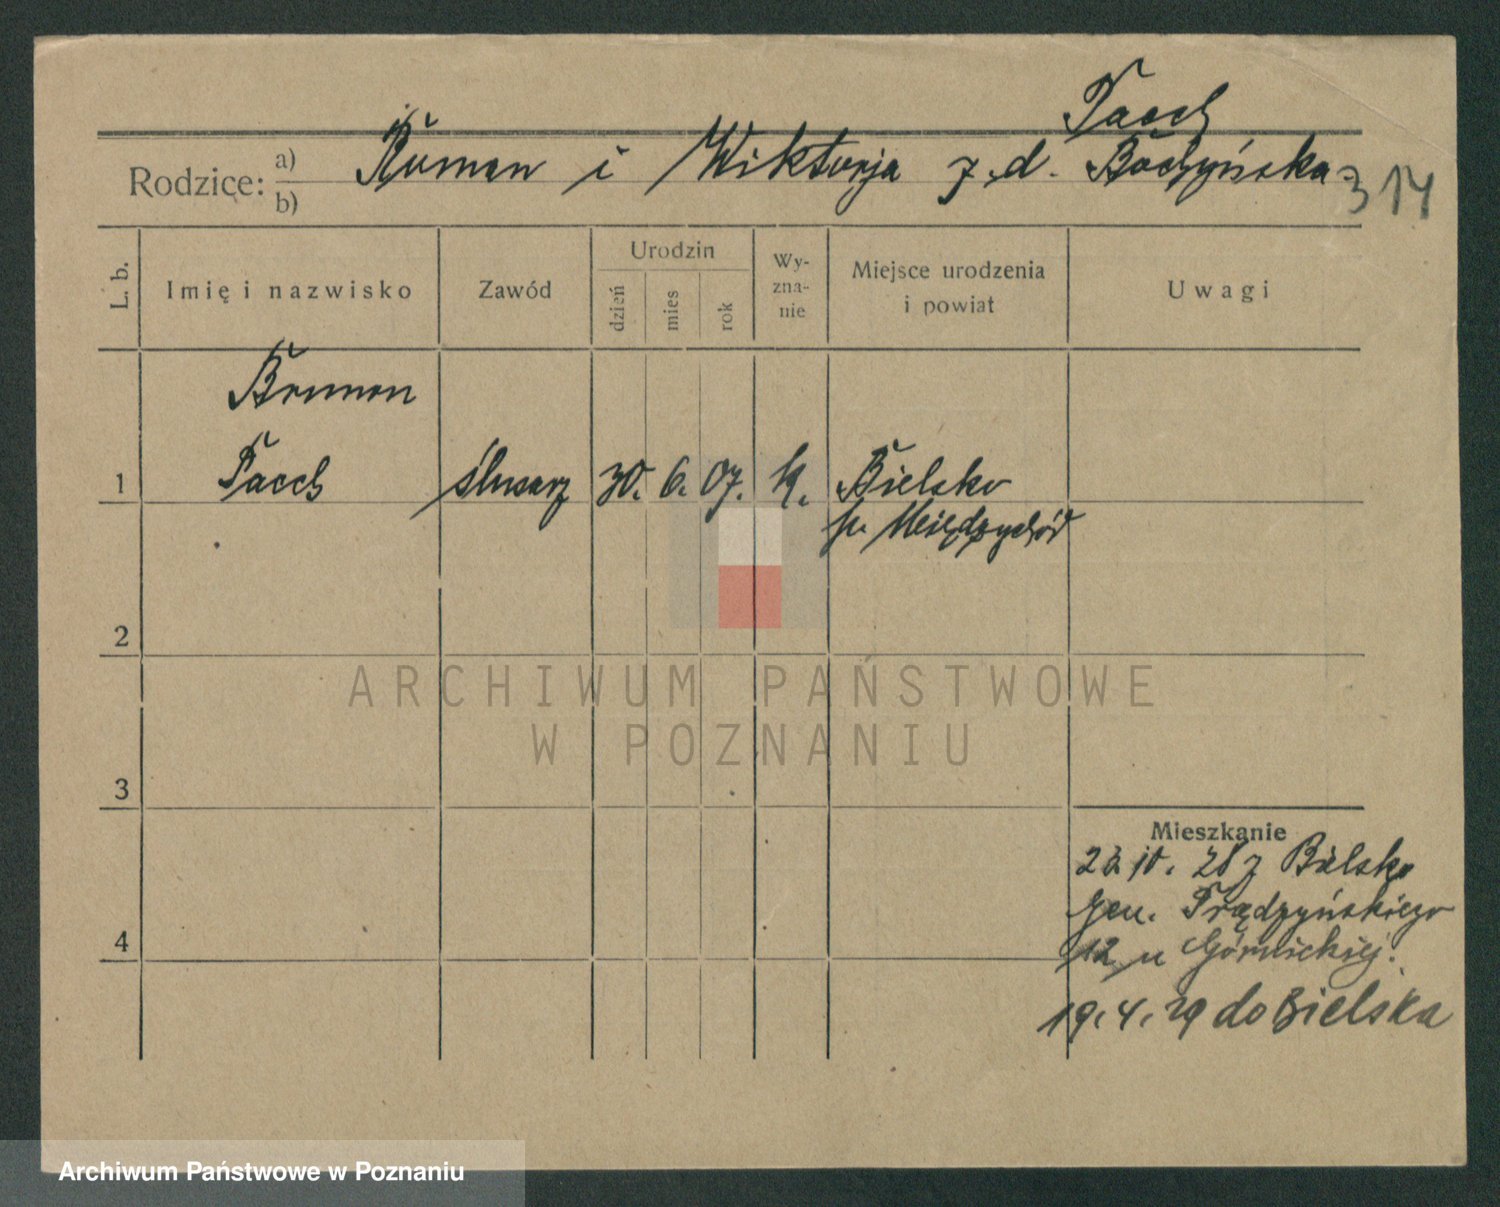 Pacch
Rodzice: a) Roman i Wiktorja z. d. Boczyńska
b)
314
L. b. Imię i nazwisko Zawód Urodzin dzień mies rok Wy-zna-nie Miejsce urodzenia i powiat Uwagi
Brunon
1 Pacch ślusarz 30. 6. 07. k. Bielsko
p. Międzychód
2
ARCHIWUM PAŃSTWOWE
W POZNANIU
3
Mieszkanie
22.10. 28 z Bielsko
gen. Prądzyńskiego
4
12 u Górnickiej.
19. 4. 29 do Bielska
Archiwum Państwowe w Poznaniu